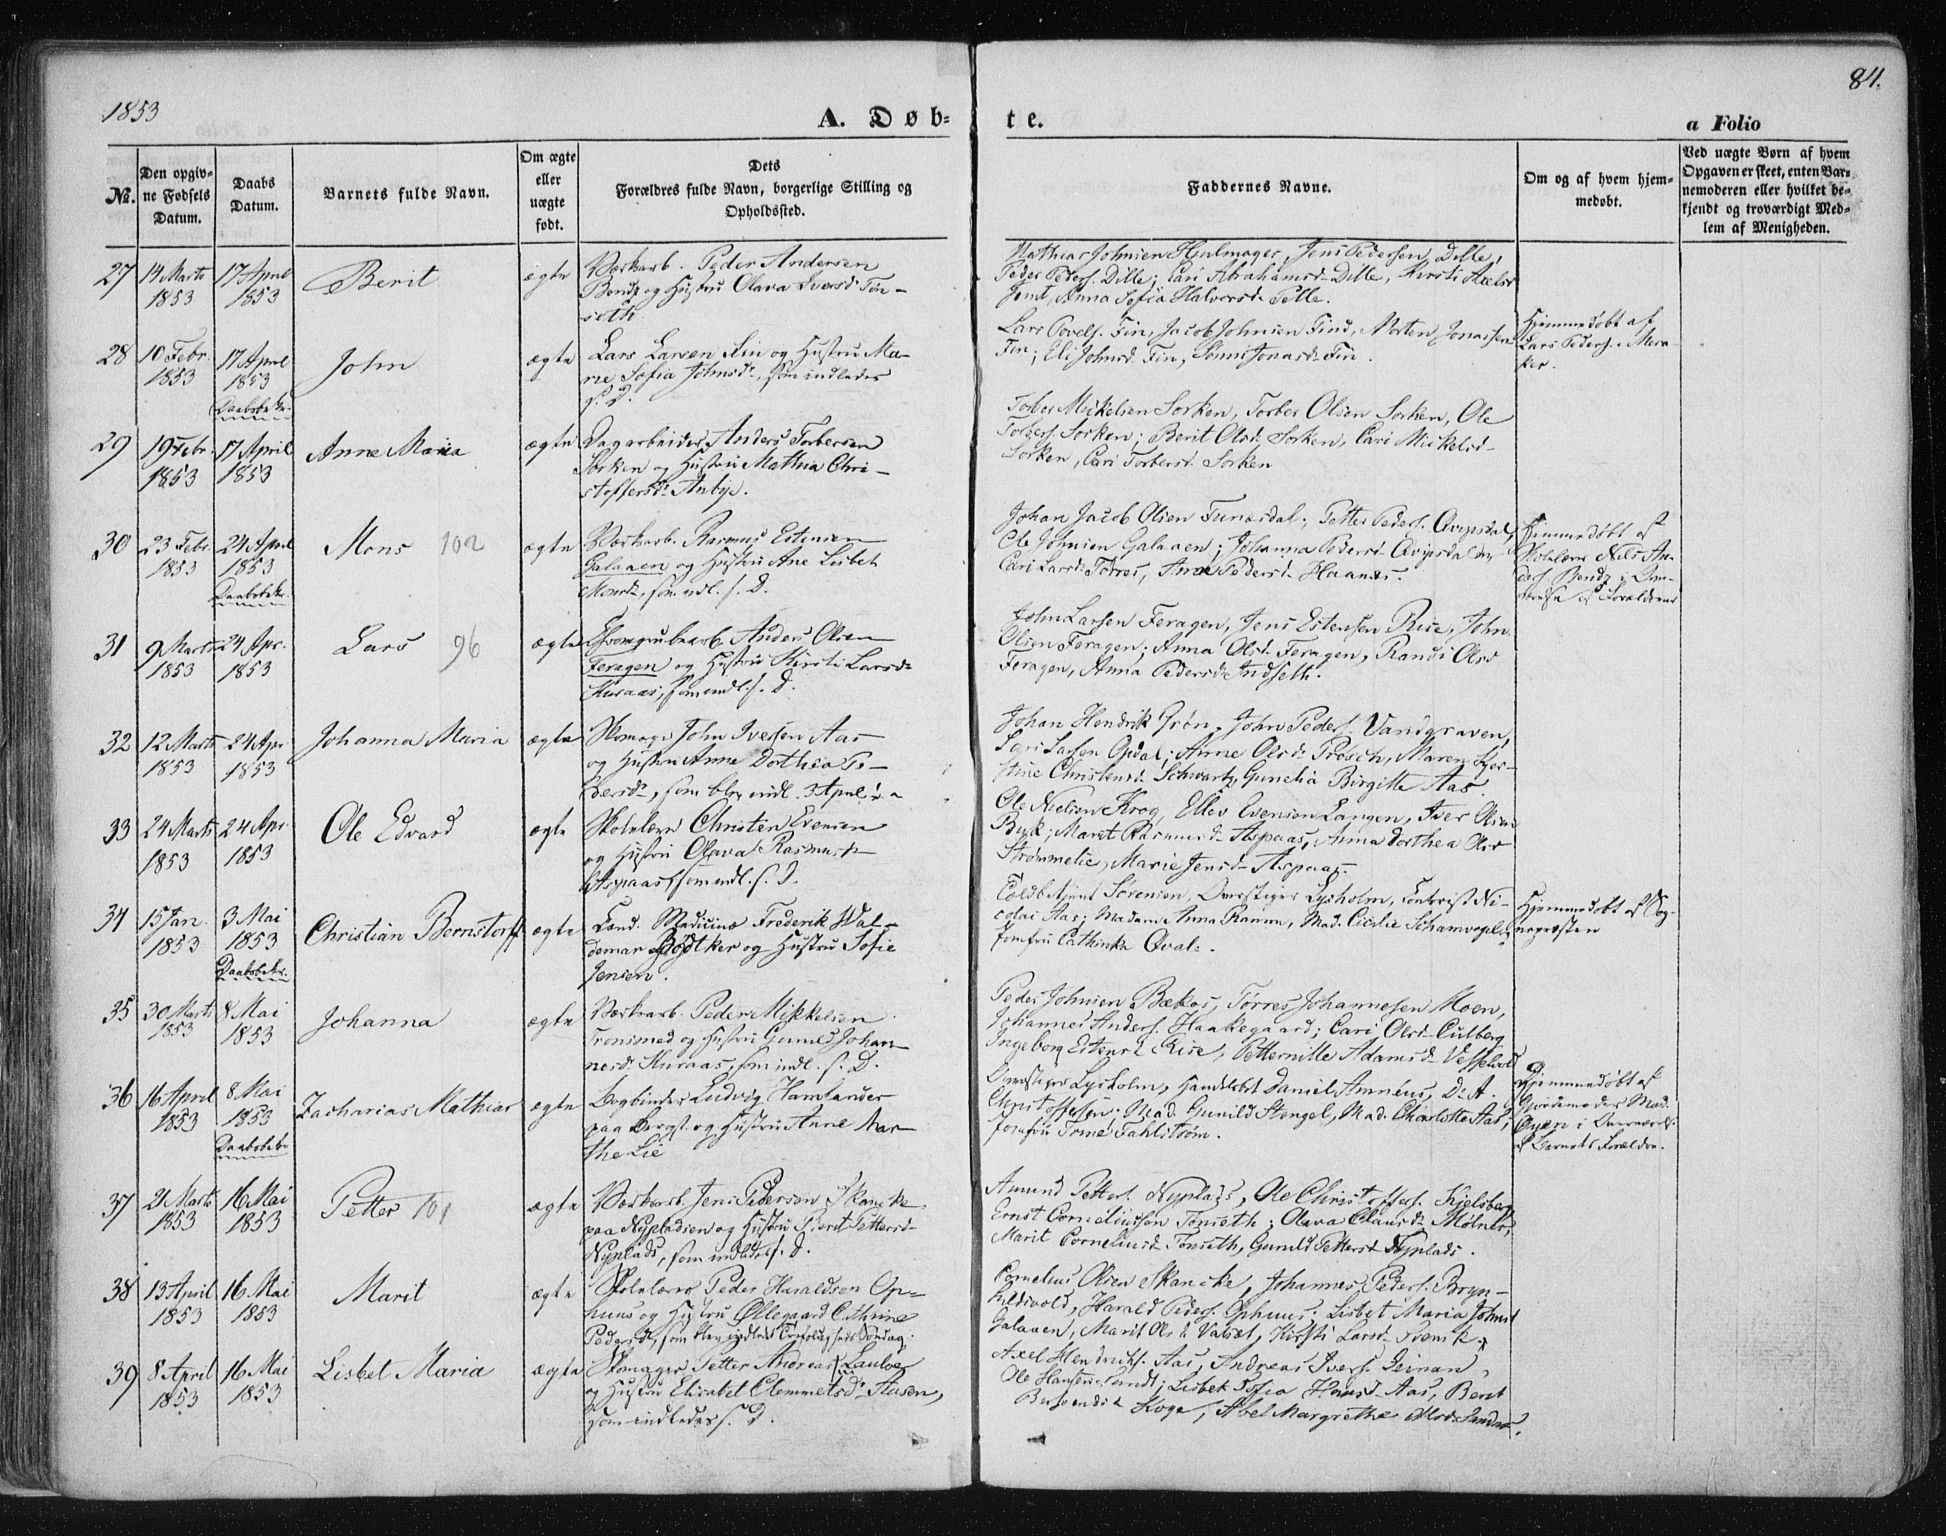 1853
84.
A. Døb-
te.
a Folio
No.
Den opgiv-
ne Fødsels
Datum.
Daabs
Datum.
Barnets fulde Navn.
Om ægte
eller
uægte
født.
Dets
Forældres fulde Navn, borgerlige Stilling og
Opholdssted.
Faddernes Navne.
Om og af hvem hjem-
medøbt.
Ved uægte Børn af hvem
Opgaven er skeet, enten Bar-
nemoderen eller hvilket be-
kjendt og troværdigt Med-
lem af Menigheden.
27
14 Marts
1853
17 April
1853
Berit
ægte
Værkarb. Peder Andersen
og Hustru Olava Iversd. Tøn-
seth
Jens Pedersen Dille,
Peder Peders. Dille; Cari Abrahamsd. Dille, Kirsti
Anna Sofia Halvorsd.
28
10 Febr.
1853
17 April
1853
Daabsbekr.
John
ægte
Lars Larsen Fin og Hustru Ma-
rie Sofia Johnsdr., som indledes
s. D.
Lars Povels. Fin, Jacob Johnsen Find, Morten Jonassen
Fin; Eli Johnsd. Fin, Jonasd. Fin.
Hjemmedøbt af
Lars Peders. i Mera-
ker.
29
19 Febr.
1853
17 April
1853
Anne Maria
ægte
Dagarbeider Anders Torbersen
Sorken og Hustru Mathia Chri-
stoffersdr.
Torber Mickelsen Sorken, Torber Olsen Sorken, Ole
Torbers. Sorken; Berit Olsd. Sorken, Cari Mickelsd.
Sorken, Cari Torbersd. Sorken
30
23 Febr.
1853
24 April
1853
Daabsbekr.
Mons 102
ægte
Værkarb. Rasmus Estensen
Galaaen og Hustru Ane Lisbet
Monsdr., som indl. s. D.
Johan Jacob Olsen Funæsdal, Petter Peders.
Ole Johnsen Galaaen; Johanna Pedersd.
Cari Larsd. Torres, Ane Pedersd. Haanæs.
Hjemmedøbt af
Skolelærer Nils An-
ders. i
af Forældrene
31
9 Marts
1853
24 Apr.
1853
Lars 96
ægte
Anders Olsen
Feragen og Hustru Kirsti Larsd.
Kuraas, som indl. s. D.
John Larsen Feragen, Jens Estensen Rise, John
Olsen Feragen; Anna Olsd. Feragen, Randi Olsd.
Feragen, Anna Pedersd. Indseth.
32
12 Marts
1853
24 Apr
1853
Johanna Maria
ægte
Skomager John Iversen Aas
og Hustru Anne Dorthea Pe-
dersdr., som blev indl. 3 April
Johan Hendrik Grøn, John Peders. Vandgraven,
Larsen Opdal; Anne Olsd. Prøsch, Maren Kjer-
stine Christensd. Schwartz, Gunelia Birgitte Aas.
33
24 Marts
1853
24 Apr.
1853
Ole Edvard
ægte
Skolelærer Christen Evensen
og Hustru Olava Rasmusd.
Aspaas, som indl. s. D.
Ole Nielsen Krog, Ellev Evensen Langen, Iver Olsen
Buk; Marit Rasmusd. Aspaas, Anna Dorthea Olsd.
Strømmelie, Marie Jensd. Aspaas.
34
15 Jan.
1853
3 Mai
1853
Daabsbekr.
Christian Bernstorff
ægte
Cand. Medicinæ Frederik Wal-
demar Bødtker og Hustru Sofie
Jensen.
Toldbetjent Sørensen, Overstiger Lysholm, Ni-
colai Aas; Madam Anna Ramm, Mad. Cicilie
Jomfru Cathinka Qvale.
Hjemmedøbt af Sog-
nepræsten
35
30 Marts
1853
8 Mai
1853
Johanna
ægte
Værkarb. Peder Mikkelsen
Tronsmed og Hustru Gunild Johan-
nesd. Kuraas, som indl. s. D.
Peder Johnsen Bækos, Torres Johannesen Moen,
Johannes Anders. Haakegaard; Cari Olsd. Culberg
Ingeborg Estensd. Rise, Petternille Adamsd. Vesselvold
36
16 April
1853
8 Mai
1853
Daabsbekr.
Zacharias Mathias
ægte
Bogbinder Ludvig Hamlander
paa Bergst. og Hustru Anne Mar-
the Lie
Overstiger Lysholm, Handelsbet. Daniel Amnéus, Do. A.
Christoffersen; Mad. Gunild Stengel, Mad. Charlotte Aas,
Jomfru Trine Fahlstrøm.
Hjemmedøbt af
Gjordemoder Mad.
Øyen i Overværelse
af Barnets Forældre.
37
21 Marts
1853
16 Mai
1853
Petter 101
ægte
Værkarb. Jens Pedersen Skancke
paa og Hustru Berit Pettersd.
Nyplads, som indledes s. D.
Amund Petters. Nyplads, Ole Christoffers. Kjelsberg,
Ernst Corneliussen Tønseth; Olava Clausd. Mølner,
Marit Corneliusd. Tønseth, Gunild Pettersd. Nyplads.
38
13 April
1853
16 Mai
1853
Marit
ægte
Skolelærer Peder Haraldsen Op-
huus og Hustru Øllegaard Cathrine
Pedersdr., som blev indledet Trefoldigheds Søndag.
Cornelius Olsen Skancke, Johannes Peders. Bryn-
hildsvold, Harald Peders. Ophuus; Lisbet Maria Johnsd.
Galaaen, Marit Olsd. Valset, Kirsti Larsd.
39
8 April
1853
16 Mai
1853
Lisbet Maria
ægte
Skomager Petter Andreas
og Hustru Elisabet Clemmetsdr. Aasen,
som indledes s. D.
Axel Hendrichs. Aas, Andreas Ivers.
Ole Hansen Sundt; Lisbet Sofia Hansd. Aas, Berit
Koge, Abel Margrethe Olsd.